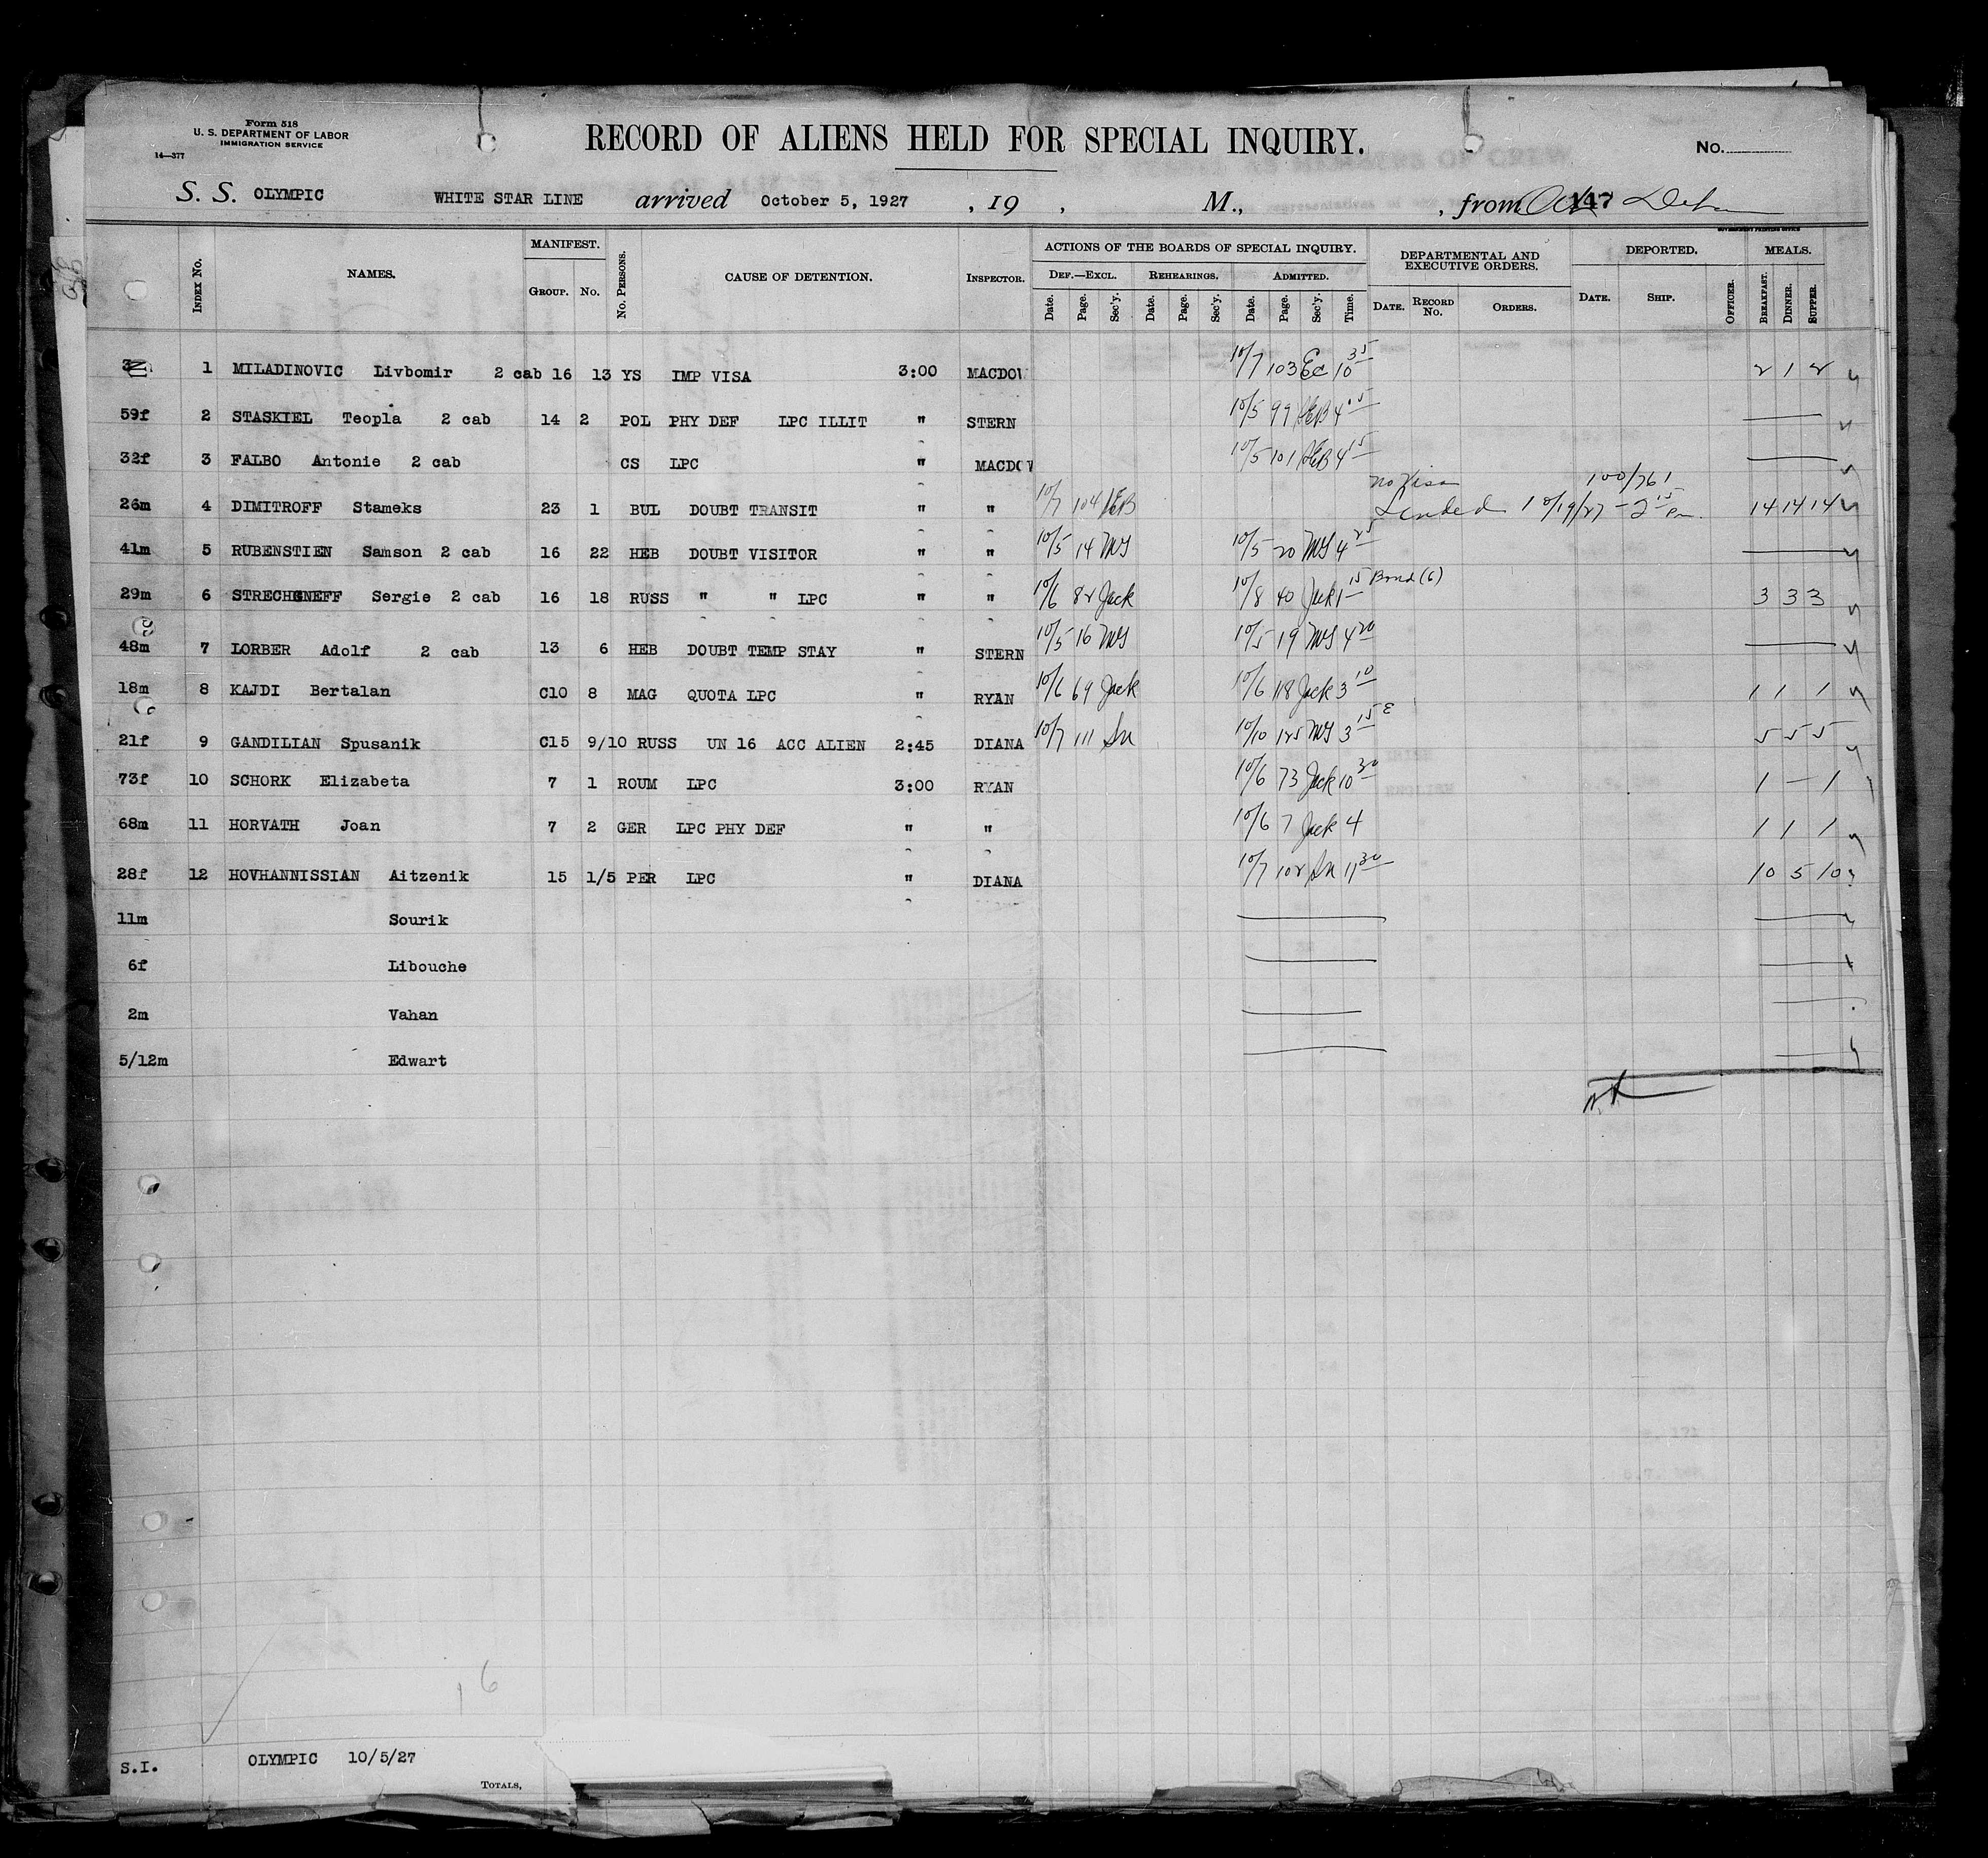 Form 518
U. S. DEPARTMENT OF LABOR
IMMIGRATION SERVICE
14—377
RECORD OF ALIENS HELD FOR SPECIAL INQUIRY.
No.
S. S. OLYMPIC WHITE STAR LINE arrived October 5, 1927 , 19 , M., , from 147
GOVERNMENT PRINTING OFFICE
INDEX No. NAMES. MANIFEST. GROUP. No. No. PERSONS. CAUSE OF DETENTION. INSPECTOR. ACTIONS OF THE BOARDS OF SPECIAL INQUIRY. DEPARTMENTAL AND EXECUTIVE ORDERS. DEPORTED. MEALS.
DEF.—EXCL. REHEARINGS. ADMITTED.
Date. Page. Sec'y. Date. Page. Sec'y. Date. Page. Sec'y. Time. DATE. RECORD No. ORDERS. DATE. SHIP. OFFICER. BREAKFAST. DINNER. SUPPER.
1 MILADINOVIC Livbomir 2 cab 16 13 YS IMP VISA 3:00 MACDOW 10/7 103 Ec 10 35 2 1 2
59f 2 STASKIEL Teopla 2 cab 14 2 POL PHY DEF LPC ILLIT " STERN 10/5 99 HEB 4 05
32f 3 FALBO Antonie 2 cab CS LPC " MACDOW 10/5 101 HEB 4 15
no visa 100/761
26m 4 DIMITROFF Stameks 23 1 BUL DOUBT TRANSIT " " 10/7 104 HEB Landed 10/19/27 - 2 15 Pm. 14 14 14
41m 5 RUBENSTIEN Samson 2 cab 16 22 HEB DOUBT VISITOR " " 10/5 14 MS 10/5 20 MS 4 25
29m 6 STRECHGNEFF Sergie 2 cab 16 18 RUSS " " LPC " " 10/6 82 Jack 10/8 40 Jack 1 15 Bond (6) 3 3 3
48m 7 LORBER Adolf 2 cab 13 6 HEB DOUBT TEMP STAY " STERN 10/5 16 MS 10/5 19 MS 4 20
18m 8 KAJDI Bertalan C10 8 MAG QUOTA LPC " RYAN 10/6 69 Jack 10/6 118 Jack 3 10 1 1 1
21f 9 GANDILIAN Spusanik C15 9/10 RUSS UN 16 ACC ALIEN 2:45 DIANA 10/7 111 Sn 10/10 125 MS 3 15 E 5 5 5
73f 10 SCHORK Elizabeta 7 1 ROUM LPC 3:00 RYAN 10/6 73 Jack 10 30 1 — 1
68m 11 HORVATH Joan 7 2 GER LPC PHY DEF " " 10/6 7 Jack 4 1 1 1
28f 12 HOVHANNISSIAN Aitzenik 15 1/5 PER LPC " DIANA 10/7 102 Sn 11 30 10 5 10
11m Sourik
6f Libouche
2m Vahan
5/12m Edwart
16
S.I. OLYMPIC 10/5/27
TOTALS,